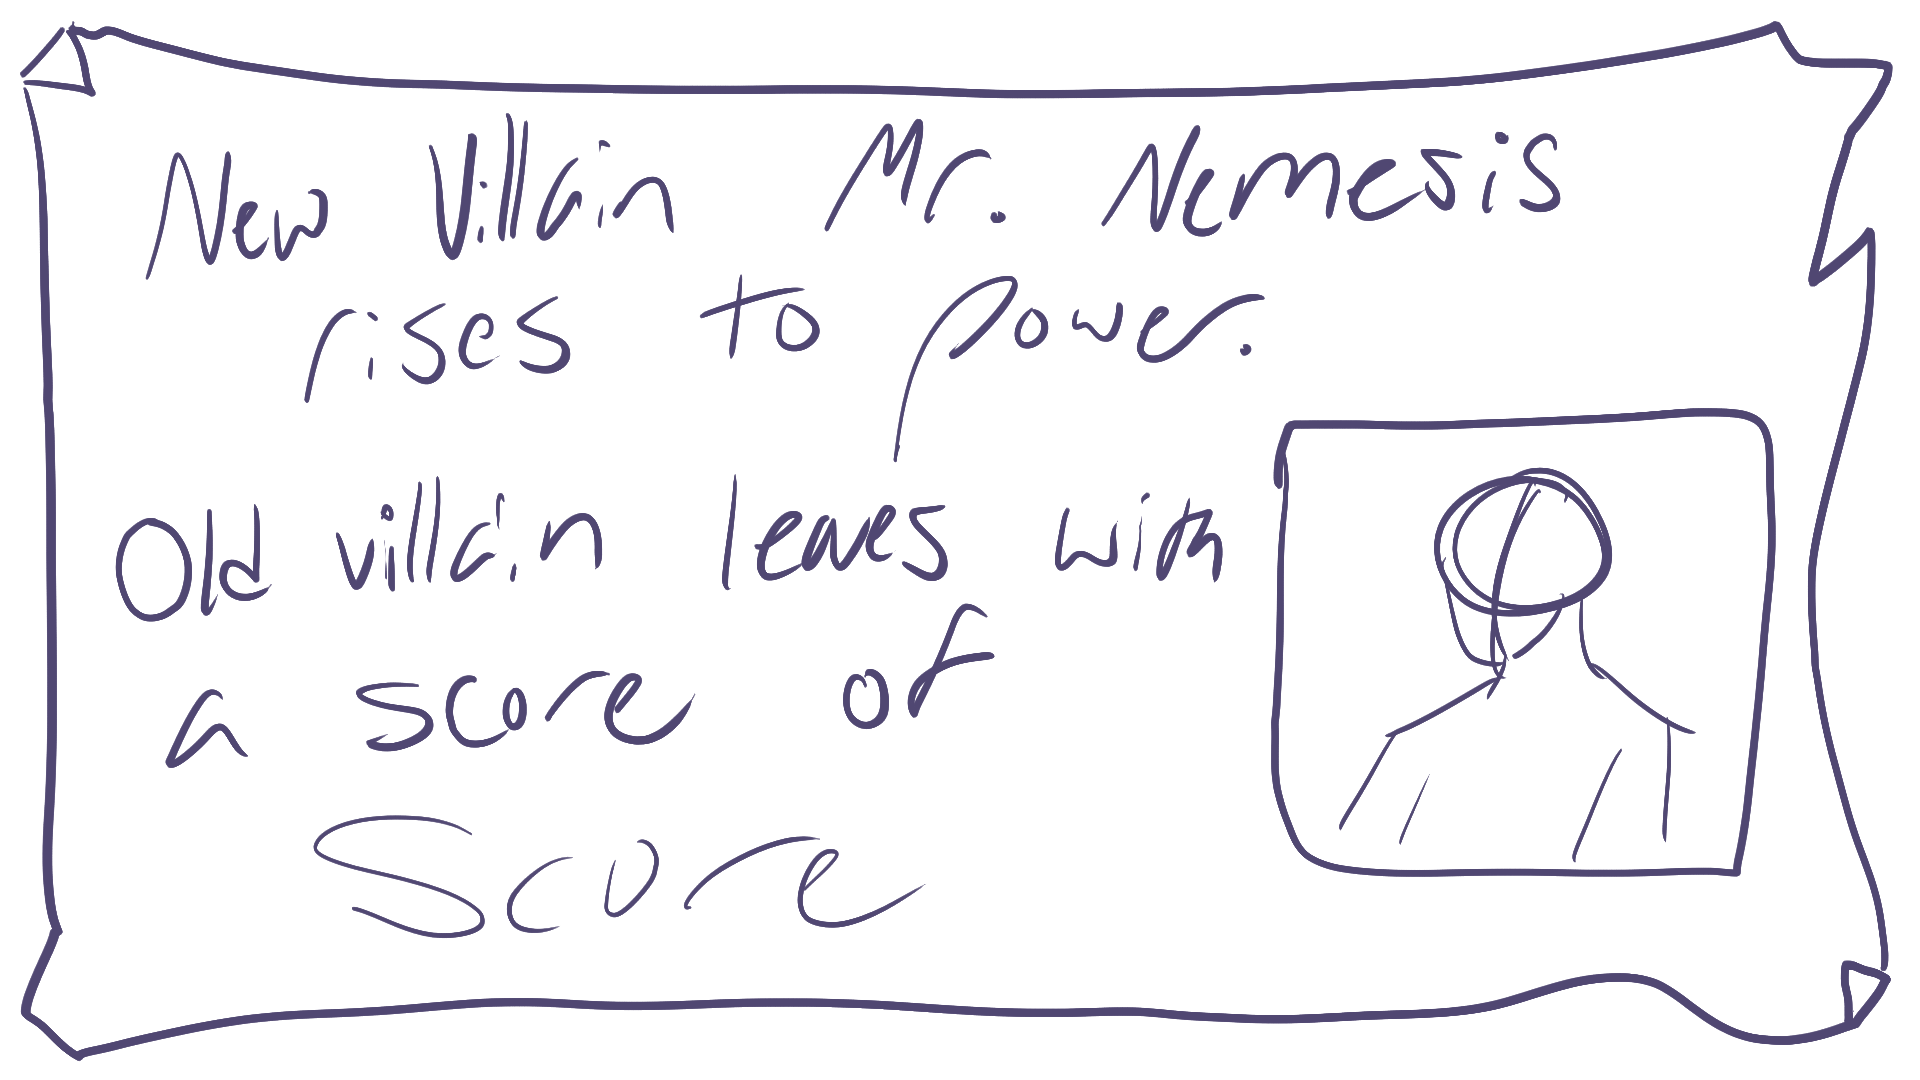 New Villain Mr. Nemesis
rises to power.
Old villain leaves with
a score of
Score